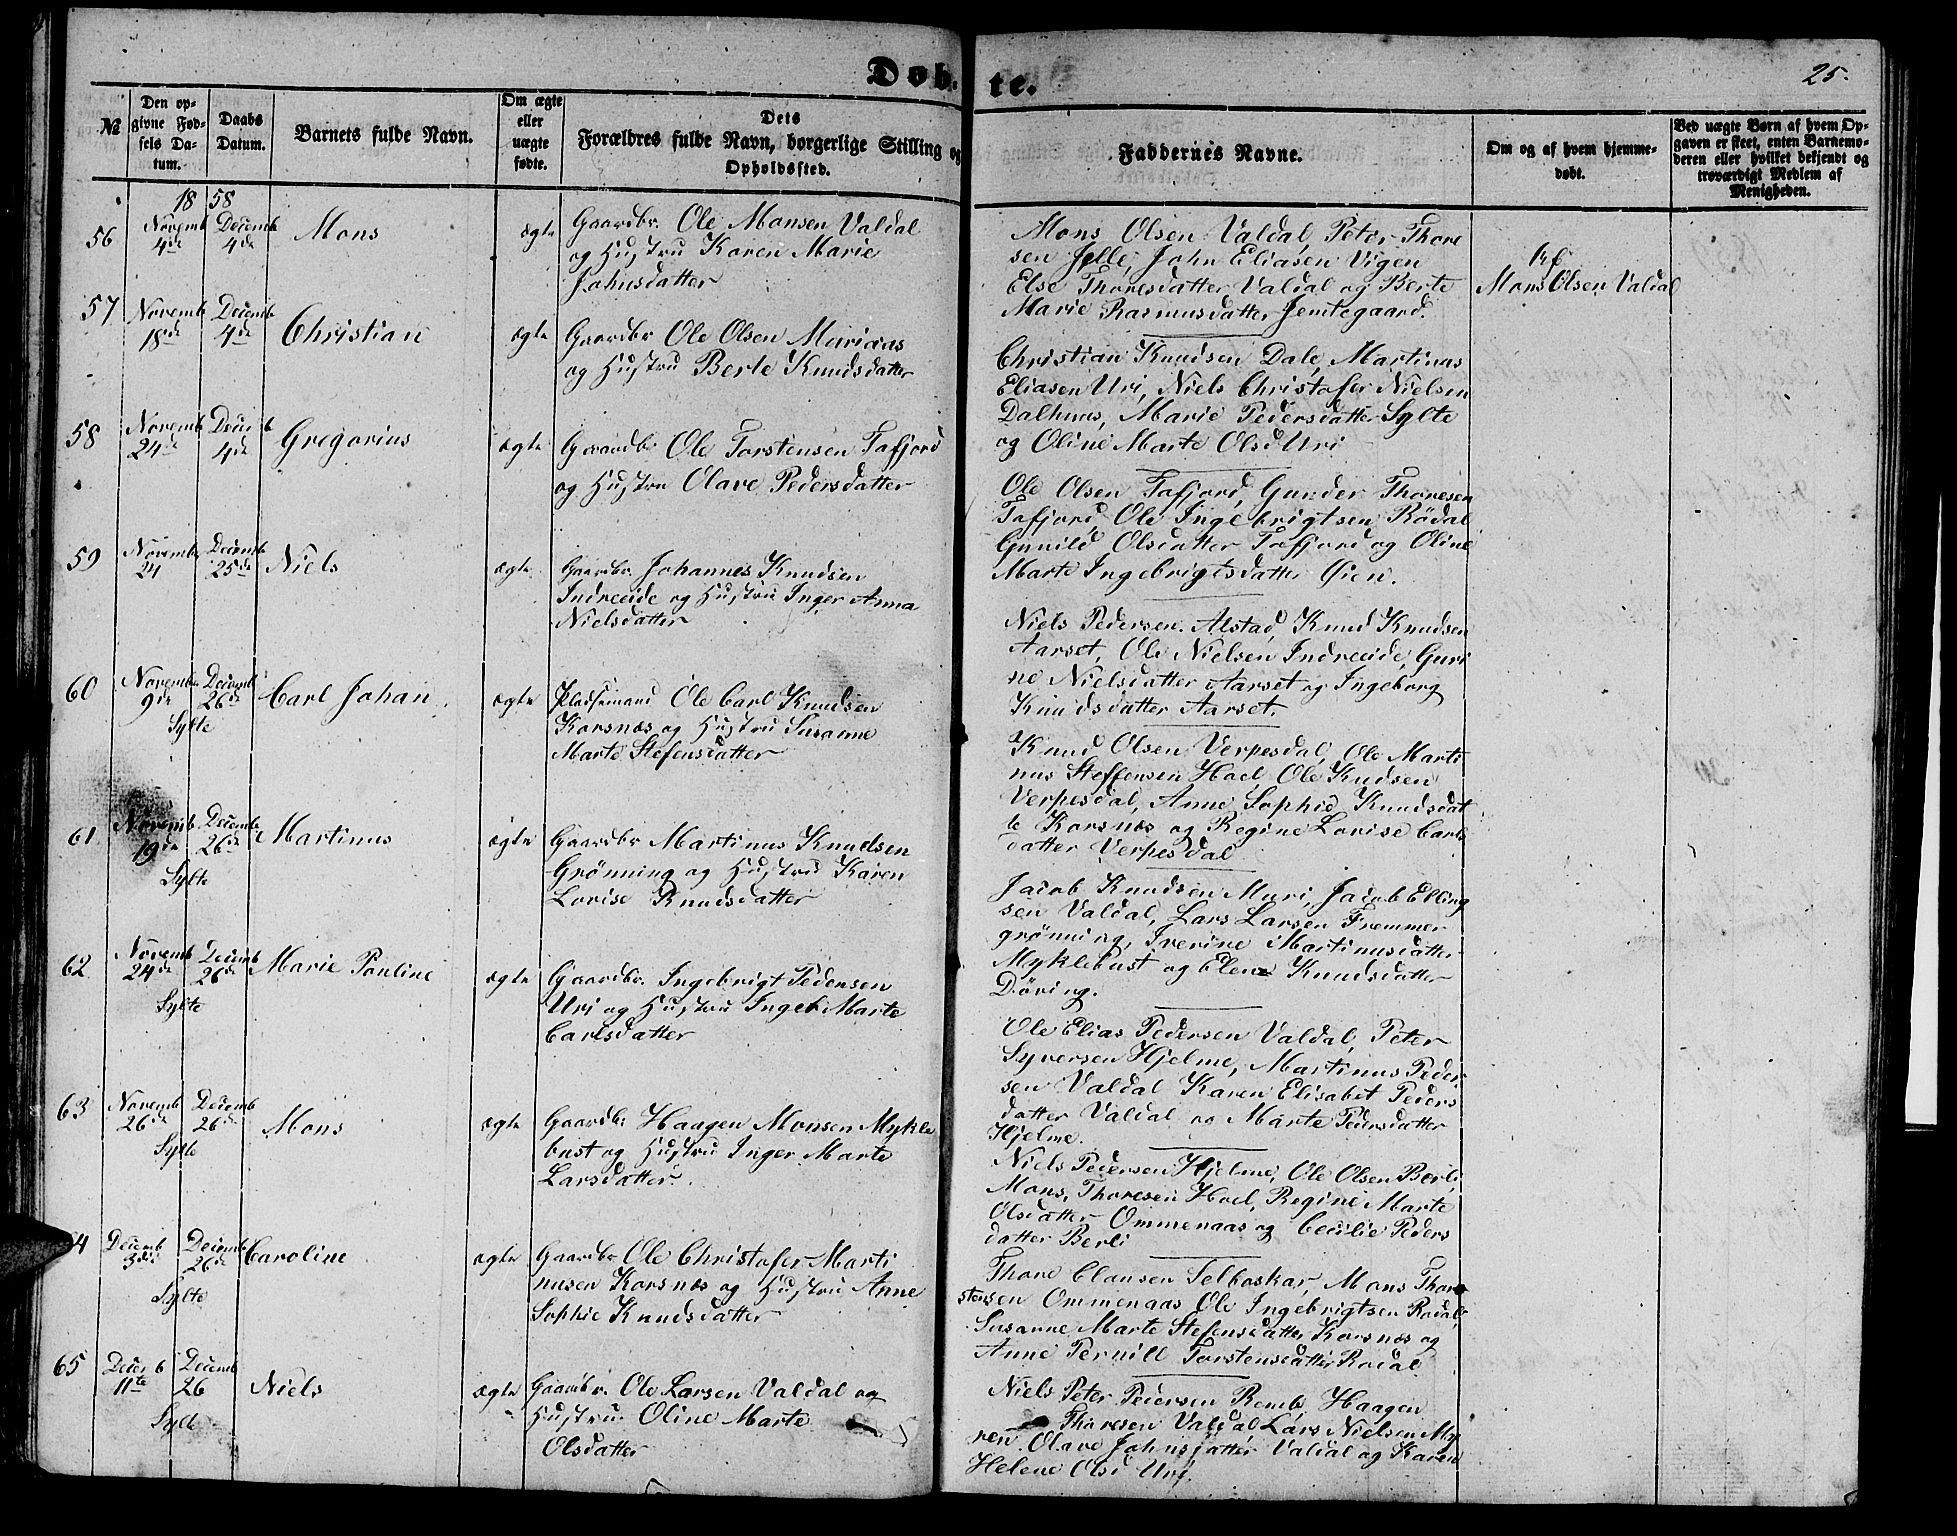 Døb-
te.
25.
№
Den op-
givne Fød-
sels Da-
tum.
Daabs
Datum.
Barnets fulde Navn.
Om ægte
eller
uægte
fødte.
Dets
Forældres fulde Navn, borgerlige Stilling og
Opholdssted.
Faddernes Navne.
Om og af hvem hjemme-
døbt.
Ved uægte Børn af hvem Op-
gaven er skeet, enten Barnemo-
deren eller hvilket bekjendt og
troværdigt Medlem af
Menigheden.
1858
56
Novemb
4de
Decemb
4de
Mons
ægte
Gaardbr. Ole Monsen Valdal
og Hustru Karen Marie
Johnsdatter
Mons Olsen Valdal, Peter Thore
sen Jelle, John Eliasen Vigen
Else Thoresdatter Valdal og Berte
Marie Rasmusdatter Jemtegaard.
Mons Olsen Valdal
57
Novemb
18de
Decemb
4de
Christian
ægte
Gaardbr Ole Olsen Muriaas
og Hustru Berte Knudsdatter
Christian Knudsen Dale, Martinus
Eliasen Uri, Niels Christofer Nielsen
Dalhuus, Marie Pedersdatter Sylte
og Oline Marte Olsd Uri
58
Novemb
24de
Decemb
4de
Gregorius
ægte
Gaardbr Ole Torstensen Tafjord
og Hustru Olave Pedersdatter
Ole Olsen Tafjord, Gunder Thoresen
Tafjord, Ole Ingebrigtsen Rødal
Gunild Olsdatter Tafjord og Oline
Marte Ingebrigtsdatter Øien.
59
Novemb
24
Decemb
25de
Niels
ægte
Gaardbr. Johannes Knudsen
Indreeide og Hustru Inger Anna
Nielsdatter
Niels Pedersen Alstad, Knud Knudsen
Aarset, Ole Nielsen Indreeide, Guri
ne Nielsdatter Aarset og Ingeborg
Knudsdatter Aarset.
60
Novemb
9de
Decemb
26de
Sylte
Carl Johan
ægte
Pladsemand Ole Carl Knudsen
Korsnæs og Hustru Susanne
Marte Stefensdatter
Knud Olsen Verpesdal, Ole Marti
nus Steffensen Hoel, Ole Knudsen
Verpesdal, Anne Sophie Knudsdat
te Korsnæs og Regine Lovise Carls
datter Verpesdal
61
Novemb
19de
Decemb
26de
Sylte
Martinus
ægte
Gaardbr Martinus Knudsen
Grønning og Hustru Karen
Lovise Knudsdatter
Jacob Knudsen Muri, Jacob Elling
sen Valdal, Lars Larsen Fremmer
grønning, Iverine Martinusdatter
Myklebust og Elene Knudsdatter
Døving.
62
Novemb
24de
Decemb
26de
Sylte
Marie Pauline
ægte
Gaardbr. Ingebrigt Pedersen
Uri og Hustru Ingeb Marte
Carlsdatter
Ole Elias Pedersen Valdal, Peter
Syversen Hjelme, Martinus Peder
sen Valdal Karen Elisabet Peders
datter Valdal og Marte Pedersdatter
Hjelme.
63
Novemb
26de
Decemb
26de
Sylte
Mons
ægte
Gaardbr. Haagen Monsen Mykle
bust og Hustru Inger Marte
Larsdatter
Niels Pedersen Hjelme, Ole Olsen Berli
Mons Thoresen Hoel, Regine Marte
Olsdatter Ommenaas og Cecilie Peders
datter Berli
4
Decemb
3die
Decemb
26de
Sylte
Caroline
ægte
Gaardbr Ole Christofer Marti
nusen Korsnæs og Hustru Anne
Sophie Knudsdatter
Thore Clausen Selboskar, Mons Thor
stensen Ommenaas Ole Ingebrigtsen Rødal,
Susanne Marte Stefensdatter Korsnæs og
Anne Pernill Torstensdatter Rødal
65
Decemb
11te
Decemb
26
Sylte
Niels
ægte
Gaardbr. Ole Larsen Valdal og
Hustru Oline Marte
Olsdatter
Niels Peter Pedersen Remb Haagen
Thoresen Valdal Lars Nielsen My
ren Olave Johnsdatter Valdal og Karen
Helene Olsd Uri